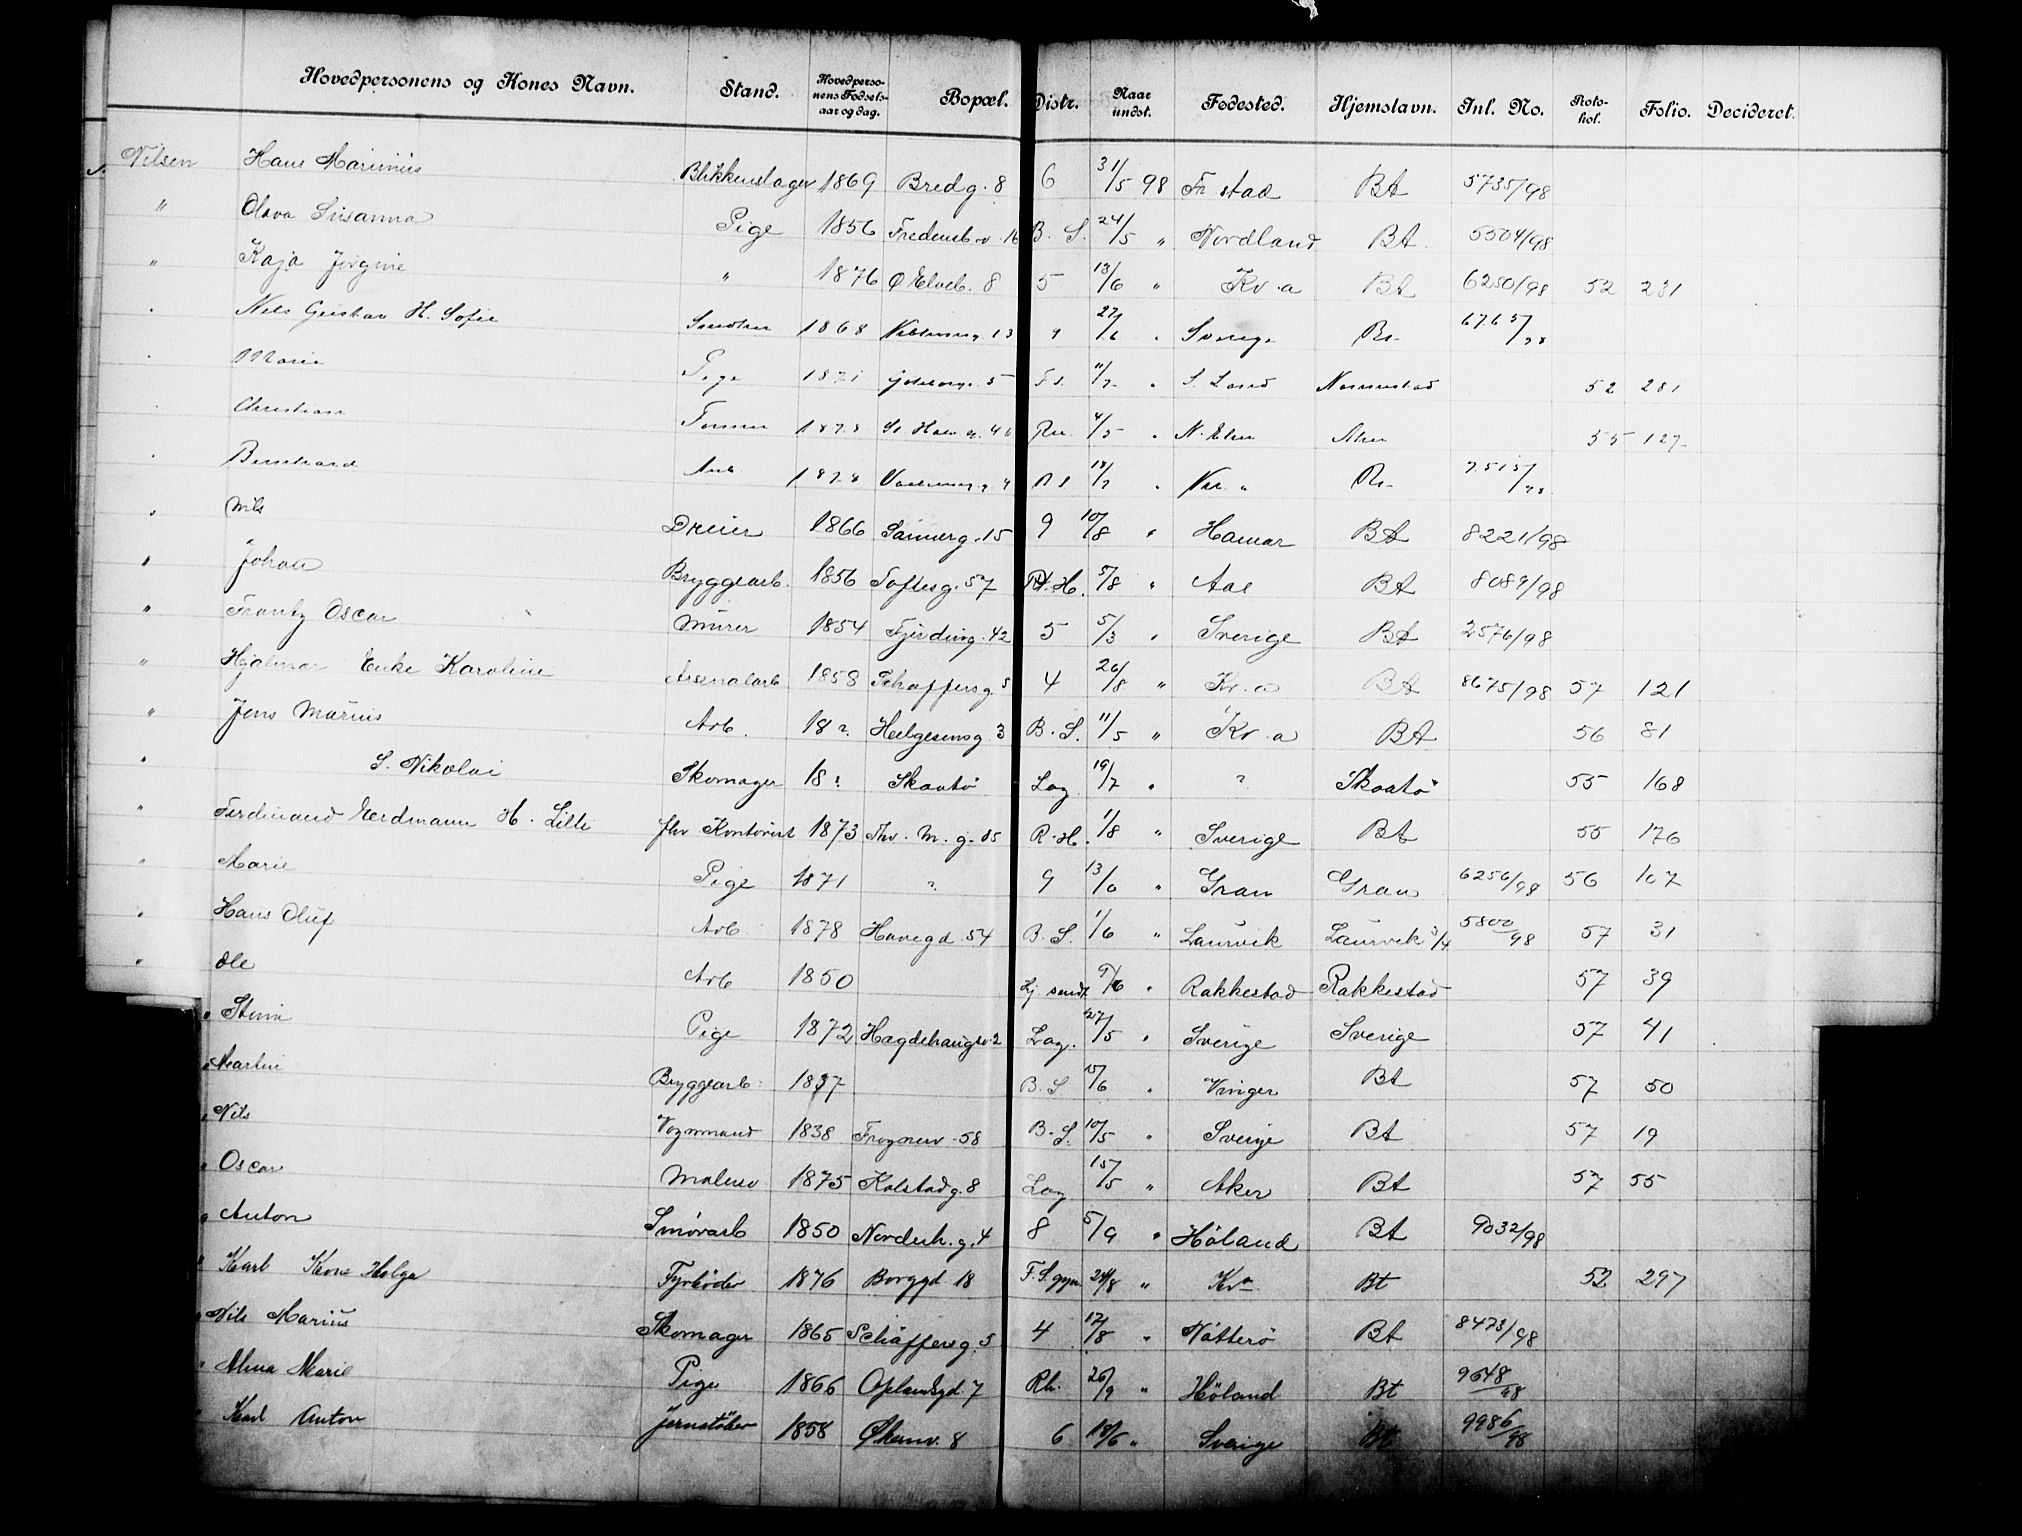 Hovedpersonens og Kones Navn. Stand. Hovedperso-nens Fødsels-aar og dag. Bopæl. Distr. Naar undst. Fødested. Hjemstavn. Inl. No. Proto-kol. Folio. Decideret.
Nilsen Hans Marinius Blikkenslager 1869 Bredg. 8 6 31/5 98 Fr stad Bt 5735/98
" Olava Susanna Pige 1856 Fredensb.v. 16 B. S. 24/5 " Nordland Bt. 5504/98
" Kaja Jørgine " 1876 Ø Elveb. 8 5 13/6 " Kr.a Bt 6250/98 52 231
Nils Gustav H. Sofie 1868 13 9 27/6 " Sverige
Marie Pige 1871 5 11/7 " 52 281
Christian 4/5 " 55 127
Bernhard Arb 18/7 "
" Nils Dreier 1866 Sannerg. 15 9 10/8 " Hamar Bt 8221/98
" Johan Bryggearb. 1856 Toftesg. 57 R.H. 5/8 " Aal Bt 8089/98
" Frantz Oscar Murer 1854 Fjerding. 42 5 5/3 " Sverige Bt 2576/98
" Hjalmar Enke Karoline Arsenalarb 1858 Schaffersg. 5 4 26/8 " Kr.a Bt 8675/98 57 121
" Jens Marius Arb. 18 ? Helgesensg. 3 B. S. 11/5 " Kr.a Bt 56 81
" S. Nikolai Skomager 18 ? Skaatø Lag. 19/7 " ? Skaatø 55 168
" Ferdinand Erdmann H. Lilli fhv Kontorist 1873 Thv. M. g. 85 R.H. 1/8 " Sverige Bt 55 176
" Marie Pige 1871 ? 9 13/6 " Gran Gran 6256/98 56 107
" Hans Oluf Arb 1878 Havegd. 54 B. S. 1/6 " Laurvik Laurvik 3/4 5800/98 57 31
" Ole Arb 1850 Hj sendt 9/6 " Rakkestad Rakkestad 57 39
" Stina Pige 1872 Hagdehaugsv. 2 Lag. 27/5 " Sverige Sverige 57 41
" Martin Bryggearb. 1837 B. S 15/6 " Vinger Bt 57 50
" Nils Vognmand 1838 Frognerv. 58 B. S. 10/5 " Sverige Bt 57 19
" Oscar Malersv 1875 Kolstadg. 8 Lag 15/5 " Aker Bt 57 55
" Anton Smørarb 1850 Norderh. g. 4 8 5/9 " Høland Bt 9032/98
" Karl Kone Helga Fyrbøder 1876 Borggd 18 F. S. gym 24/8 " Kra Bt 52 297
" Nils Marius Skomager 1865 Schaffersg. 5 4 17/8 " Nøtterø Bt 8473/98
" Alma Marie Pige 1866 Oplandsgd 7 Rh. 26/9 " Høland Bt 9648/98
" Karl Anton Jernstøber 1858 Økernv. 8 6 18/6 " Sverige Bt 9986/98